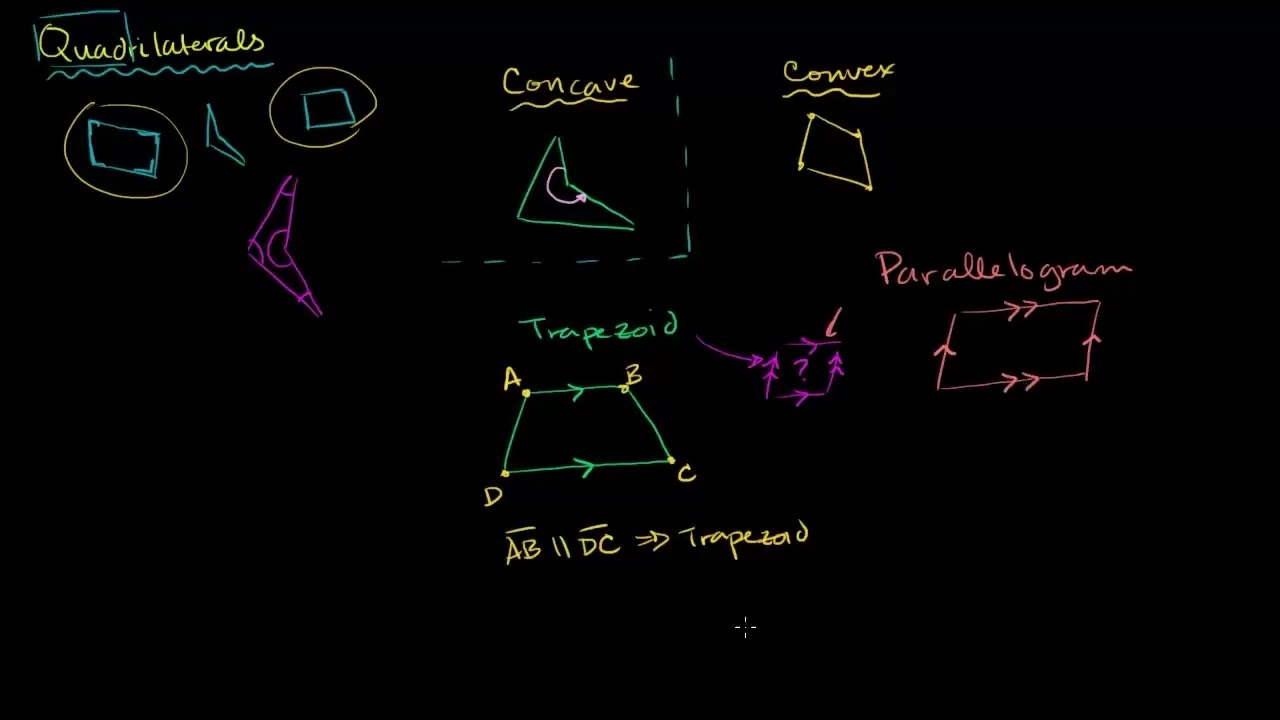 Quadrilaterals
Concave
Convex
Parallelogram
Trapezoid
?
A
B
D
C
AB || DC ⇒ Trapezoid